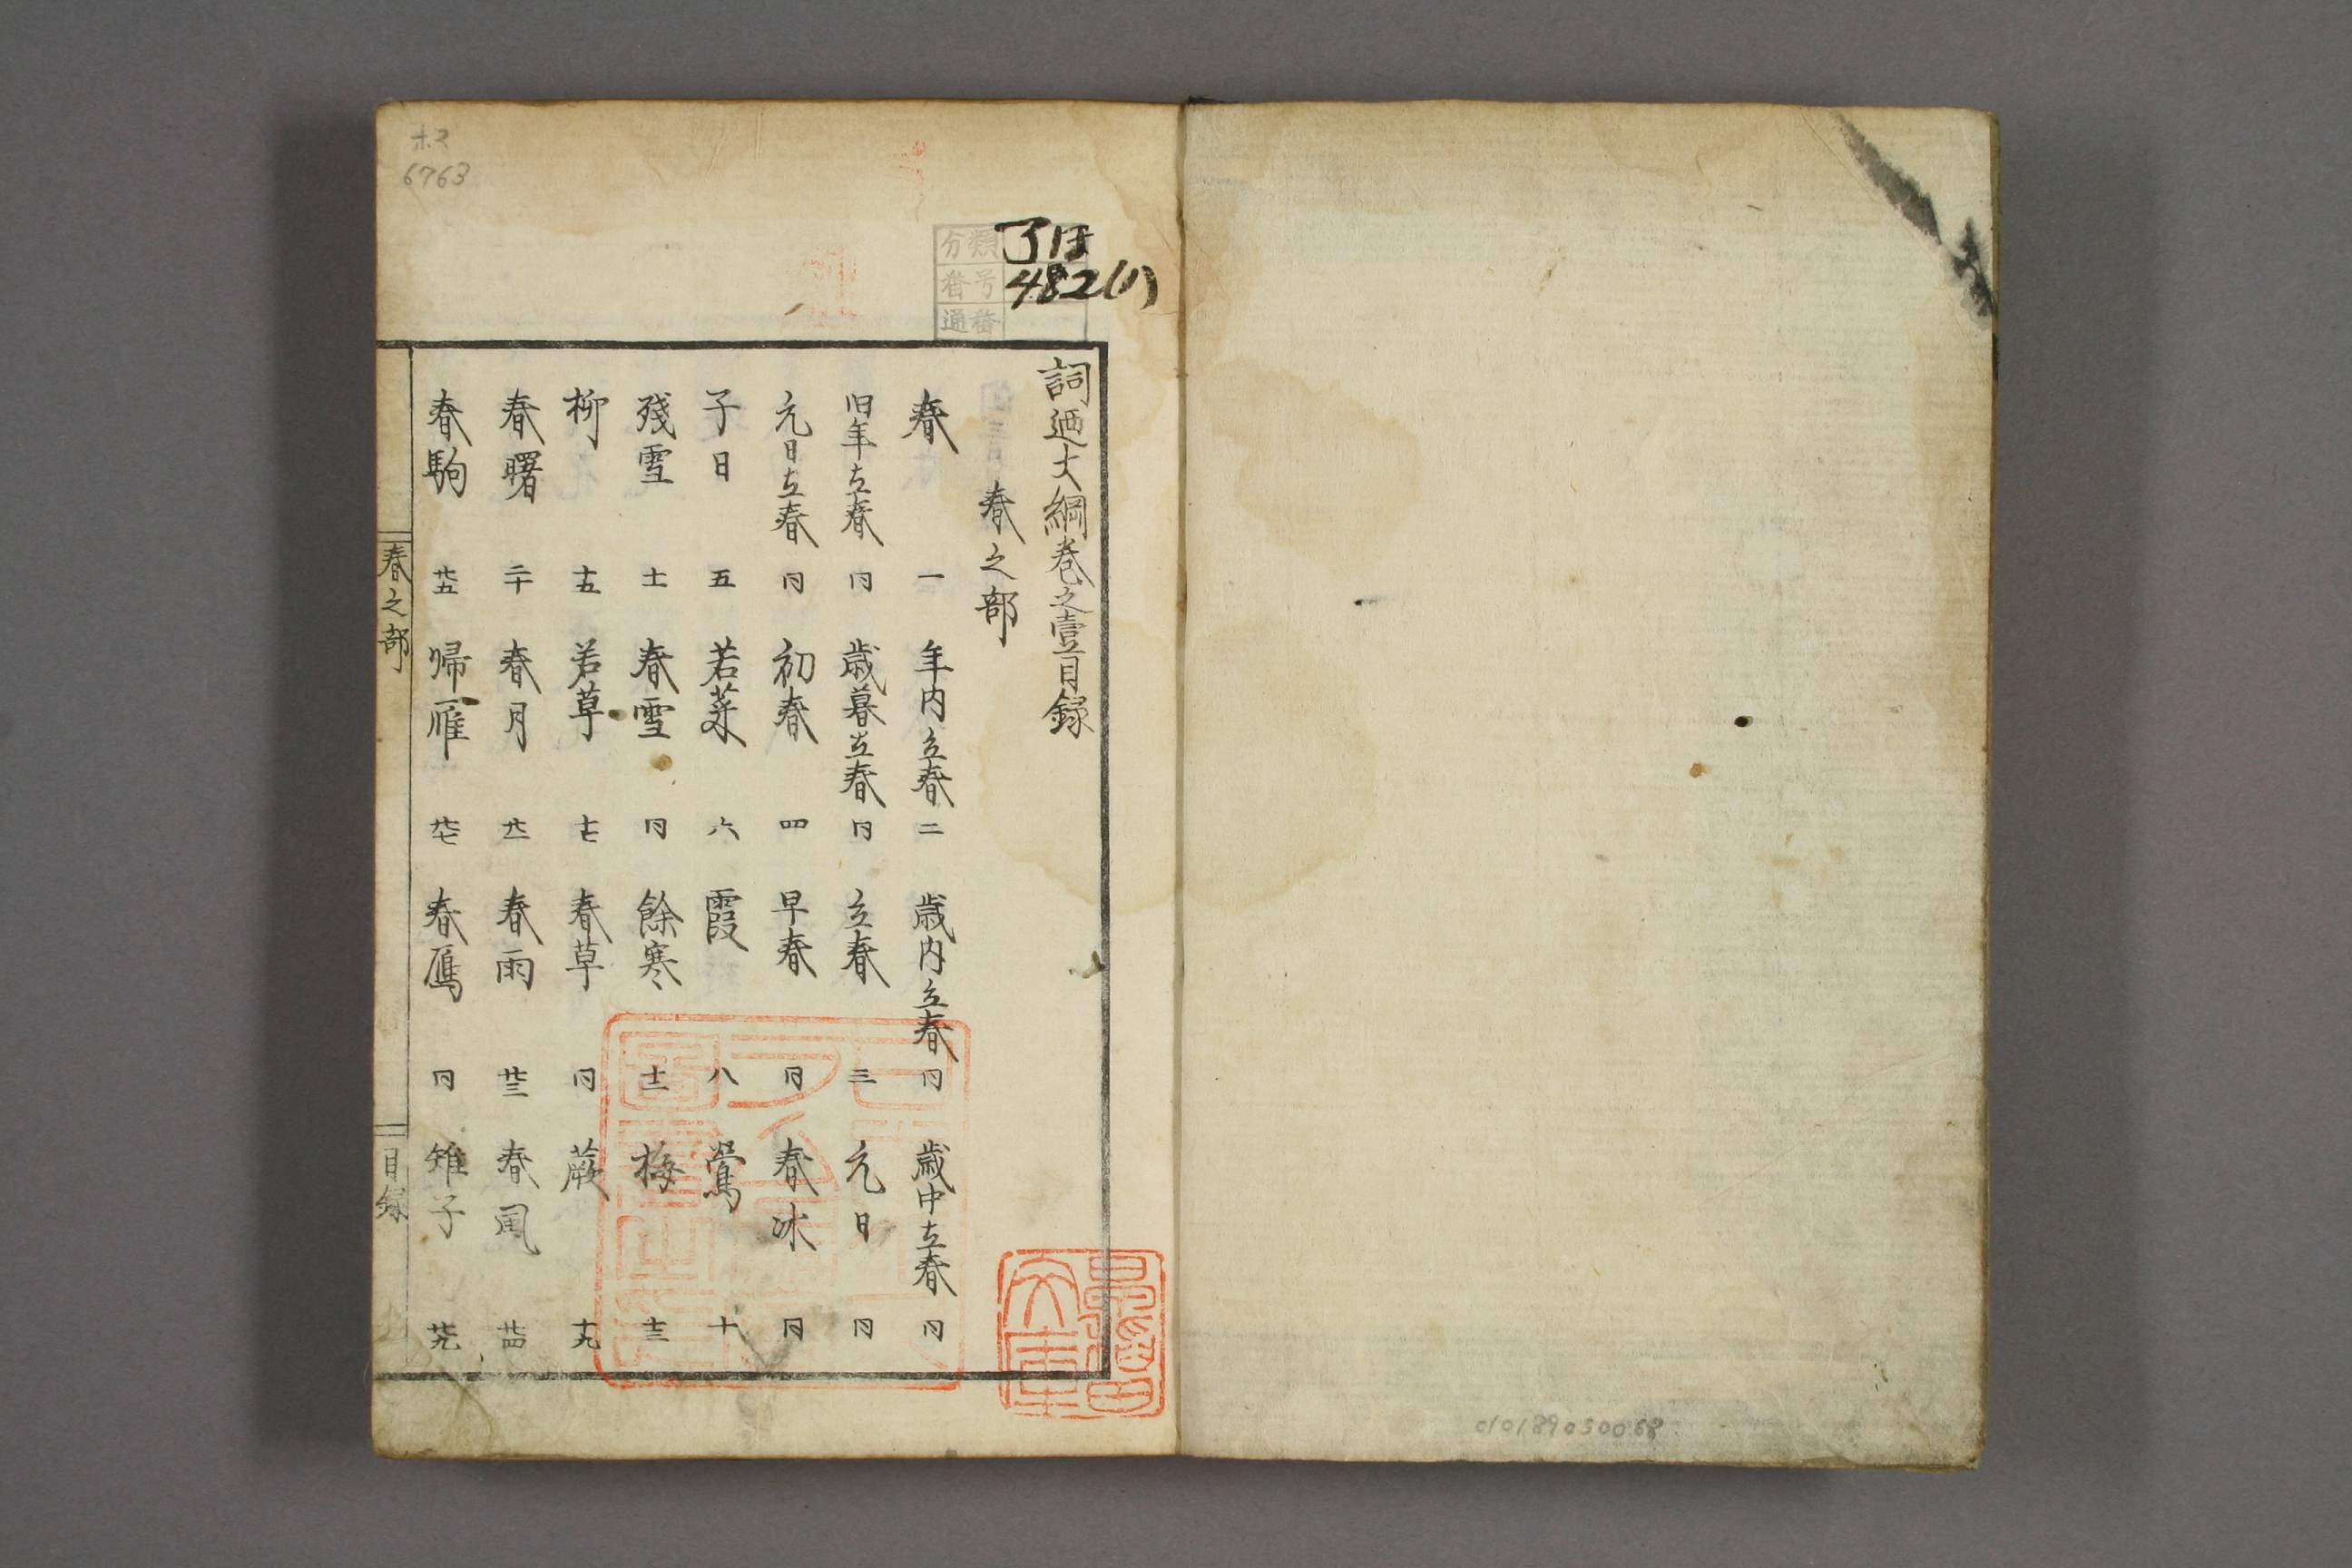 詞廼大綱巻之壹目録
春之部
春 一 年内立春 二 歳内立春 同 歳中立春 同
旧年立春 同 歳暮立春 同 立春 三 元日 同
元日立春 同 初春 四 早春 同 春氷 同
子日 五 若菜 六 霞 八 鶯 十
残雪 十一 春雪 同 餘寒 十二 梅 十三
柳 十五 若草 十七 春草 同 蕨 十九
春曙 二十 春月 廿一 春雨 廿三 春風 廿四
春駒 廿五 帰雁 廿七 春鴈 同 雉子 廿九
春之部
目録
分類
番号
通番
482(1)
ホマ
6763